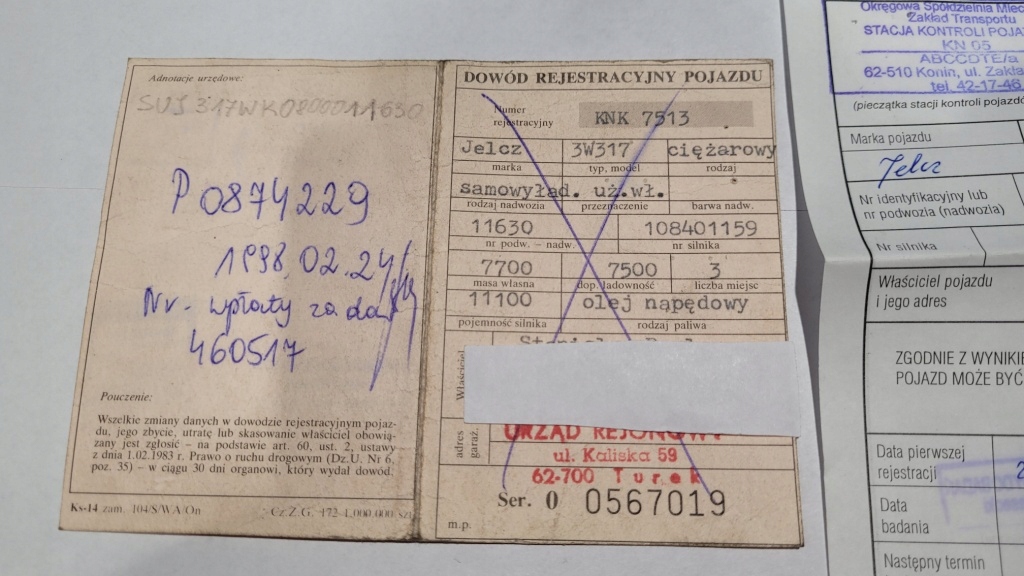 Adnotacje urzędowe:
SUJ317WK0800011630
P 0874229
1998.02.24
Nr. wpłaty za dow
460517
Pouczenie:
Wszelkie zmiany danych w dowodzie rejestracyjnym pojaz-
du, jego zbycie, utratę lub skasowanie właściciel obowią-
zany jest zgłosić – na podstawie art. 60, ust. 2, ustawy
z dnia 1.02.1983 r. Prawo o ruchu drogowym (Dz.U. Nr 6,
poz. 35) – w ciągu 30 dni organowi, który wydał dowód.
Ks-14 zam. 104/S/WA/On
Cz.Z.G. 172 1.000.000 szt
DOWÓD REJESTRACYJNY POJAZDU
Numer
rejestracyjny KNK 7513
Jelcz 3W317 ciężarowy
marka typ, model rodzaj
samowyład. uż.wł.
rodzaj nadwozia przeznaczenie barwa nadw.
11630 108401159
nr podw. – nadw. nr silnika
7700 7500 3
masa własna dop. ładowność liczba miejsc
11100 olej napędowy
pojemność silnika rodzaj paliwa
Właściciel
adres
garaż.
URZĄD REJONOWY
ul. Kaliska 59
62-700 Turek
Ser. O 0567019
m.p.
Okręgowa Spółdzielnia Mlec
Zakład Transportu
STACJA KONTROLI POJA
KN 05
ABCCOTE/a
62-510 Konin, ul. Zakła
tel. 42-17-46
(pieczątka stacji kontroli pojazdó
Marka pojazdu
Jelcz
Nr identyfikacyjny lub
nr podwozia (nadwozia)
Nr silnika
Właściciel pojazdu
i jego adres
ZGODNIE Z WYNIKIE
POJAZD MOŻE BYĆ
Data pierwszej
rejestracji
Data
badania
Następny termin